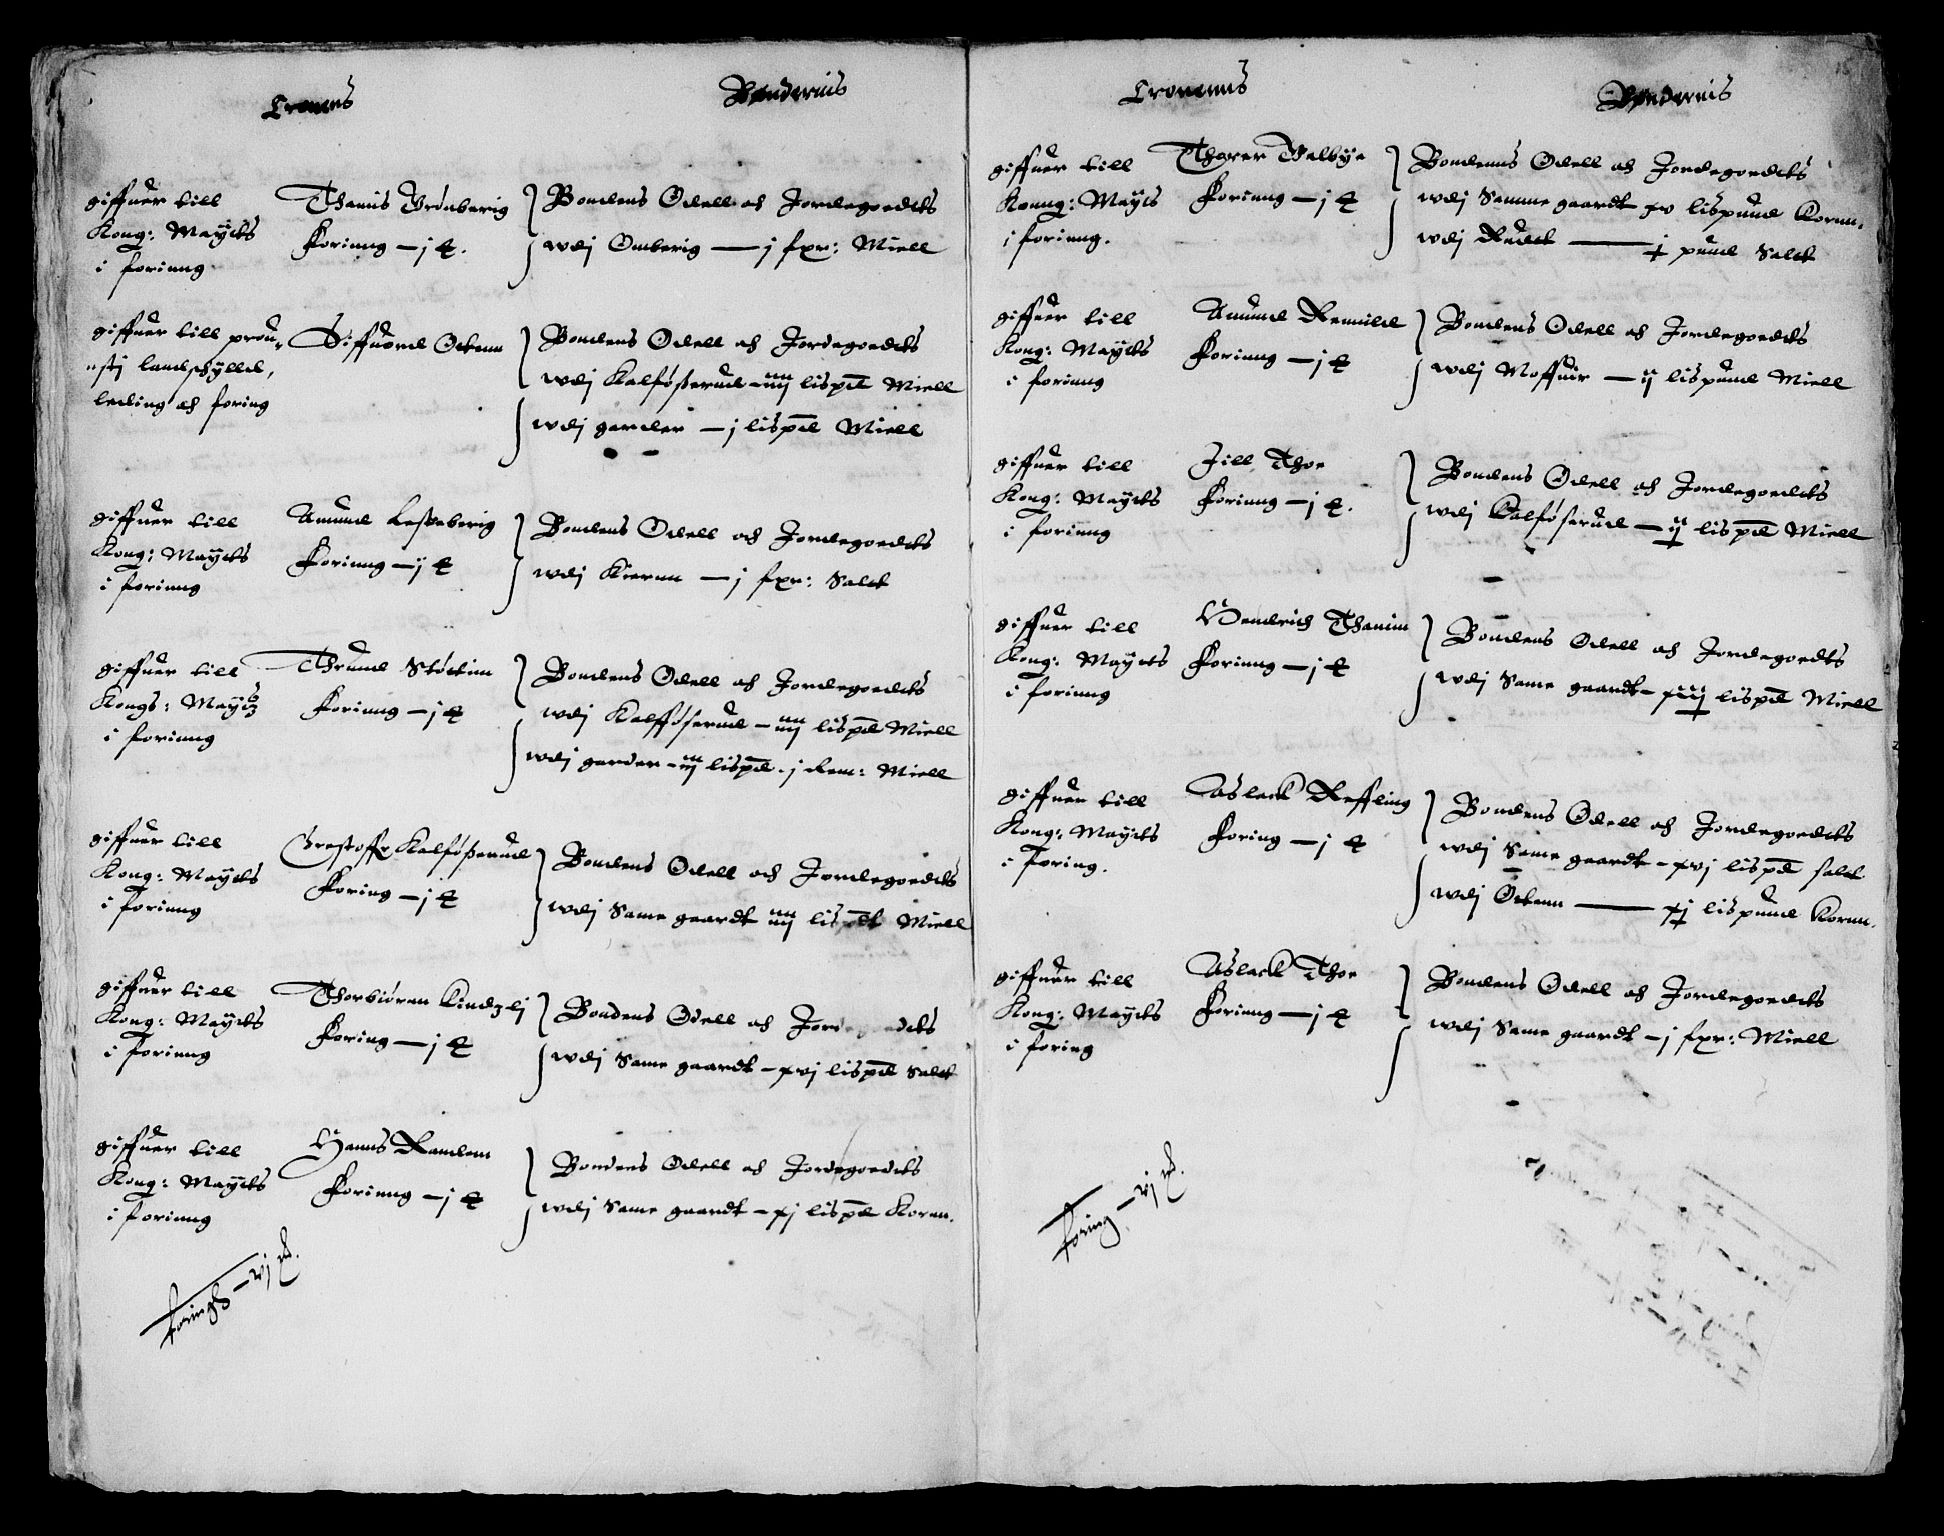 Cronens
Bøndernis
giffuer till
Kong: Maÿets
i foriung
Thamis Brönberig
Foriung — j
Bondens Odell och Jordegoedets
wdj Omberig — j fxr: Miell
giffuer till prou-
stj landschÿlld,
leding och foring
Siffuord Ockenn
Bondens Odell och Jordegoedets
wdj Kalføßerud – iiij lispd Miell
wdj garder — j lispd Miell
giffuer till
Kong: Maÿets
i foriung
Amund Leskeberig
Foriung — j
Bondens Odell och Jordegoedets
wdj Kiernn — j fxr: Salt
giffuer till
Kongs: Maÿtz
i foriung
Thrund Støckim
Foriung — j
Bondens Odell och Jordegoedets
wdj Kalfføserud – iiij lispd Miell
wdj garder – iij lispd. j Rem: Miell
giffuer till
Kong: Maÿets
i foriung
Crestoffr Kalføßerud
Foring — j
Bondens Odell och Jordegoedets
wdj Same gaardt iiij lispdt Miell
giffuer till
Kong: Maÿets
i foriung
Thorbiørnn Kindzlj
Foring — j
Bondens Odell och Jordegoedets
wdj Same gaardt – xvj lispd Salt
giffuer till
Kong: Maÿets
i foriung
Hanns Ramlem
Foriung — j
Bondens Odell och Jordegoedets
wdj Same gaardt – xj lispd Kornn.
forings – vj
15
Cronenns
Bøndernis
giffuer till
Konng: Maÿts
i foriung.
Thorer Walbÿe
Foriung — j
Bondenns Odell och Jordegoedets
wdj Samme gaardt xv lispund Kornn.
wdj Rudet — j pund Salt
giffuer till
Kong: Maÿets
i foriung
Amund Remildt
Foriung — j
Bondens Odell och Jordegoedets
wdj Moffuir — ij lispund Miell
giffuer till
Kong: Maÿets
i foriung
Jill Thor
Foriung — j
Bondens Odell och Jordegoedets
wdj Kalføserud — ij lispd Miell
giffuer till
Kong: Maÿets
i foriung
Hendrich Thanim
Foriung — j
Bondens Odell och Jordegoedts
wdj Same gaardt – xiij lispd Miell
giffuer till
Kong: Maÿets
i foring.
Aslack Reffling
Foring — j
Bondens Odell och Jordegoedets
wdj Same gaardt – xvj lispd salt
wdj Ockenn — xj lispund Kornn.
giffuer till
Kong: Maÿets
i foring
Aslack Thor
Foriung — j
Bondens Odell och Jordegoedets
wdj Same gaardt – j fxr: Miell
foring – vj